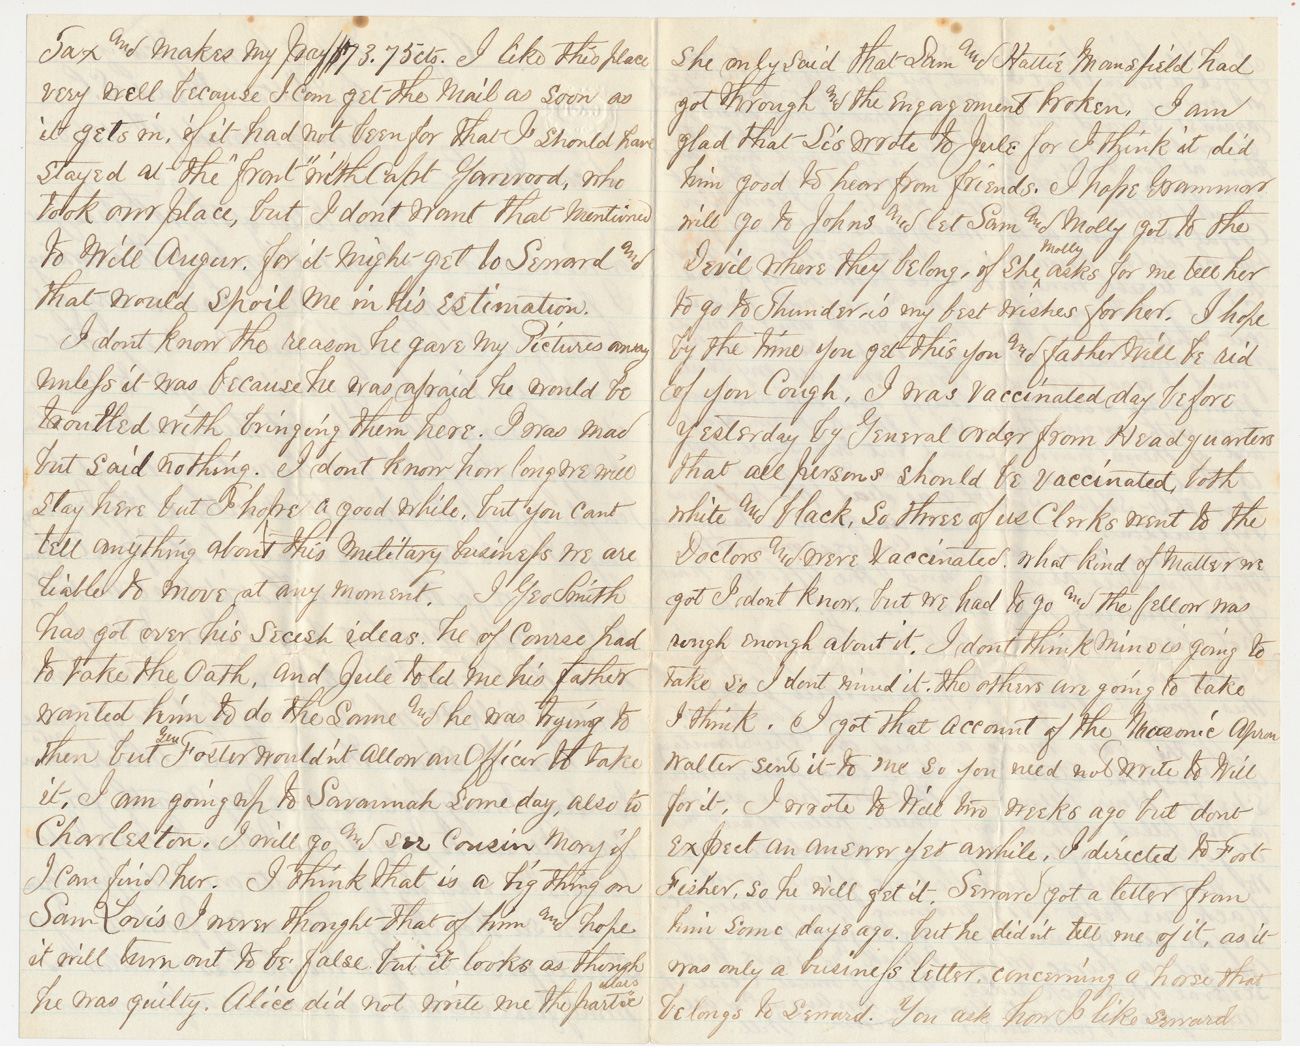 Tax and makes my pay $73.75cts. I like this place
very well because I can get the Mail as soon as
it gets in, if it had not been for that I should have
stayed at the "front" with Capt Yarwood, who
took our place, but I dont want that mentioned
to Will Augur, for it might get to Seward and
that would spoil me in his estimation.
I dont know the reason he gave my Pictures away
unless it was because he was afraid he would be
troubled with bringing them here. I was mad
but said nothing. I dont know how long we will
stay here but I hope a good while, but you cant
tell anything about this military business we are
liable to move at any moment. I Geo Smith
has got over his Secesh ideas. he of course had
to take the Oath, and Jule told me his father
wanted him to do the same and he was trying to
then but Gen Foster wouldn't allow an Officer to take
it. I am going up to Savannah some day, also to
Charleston. I will go and see Cousin Mary if
I can find her. I think that is a big thing on
Sam Lovis I never thought that of him and hope
it will turn out to be false but it looks as though
he was guilty. Alice did not write me the particulars
She only said that Sam and Hattie Mansfield had
got through and the engagement broken. I am
glad that Sis wrote to Jule for I think it did
him good to hear from friends. I hope Grammar
will go to Johns and let Sam and Molly got to the
Devil where they belong, if she Molly asks for me tell her
to go to Thunder, is my best wishes for her. I hope
by the time you get this you and father will be rid
of you Cough. I was vaccinated day before
yesterday by General order from Headquarters
that all persons should be vaccinated, both
white and black, so three of us Clerks went to the
Doctors and were Vaccinated. what kind of Matter we
got I dont know, but we had to go and the fellow was
rough enough about it. I dont think mine is going to
take so I dont mind it. the others are going to take
I think. I got that account of the Masonic Apron
Walter sent it to me so you need not write to Will
for it. I wrote to Will two weeks ago but dont
expect an answer yet awhile. I directed to Fort
Fisher, so he will get it. Seward got a letter from
him some days ago. but he didn't tell me of it, as it
was only a business letter, concerning a horse that
belongs to Seward. You ask how I like Seward